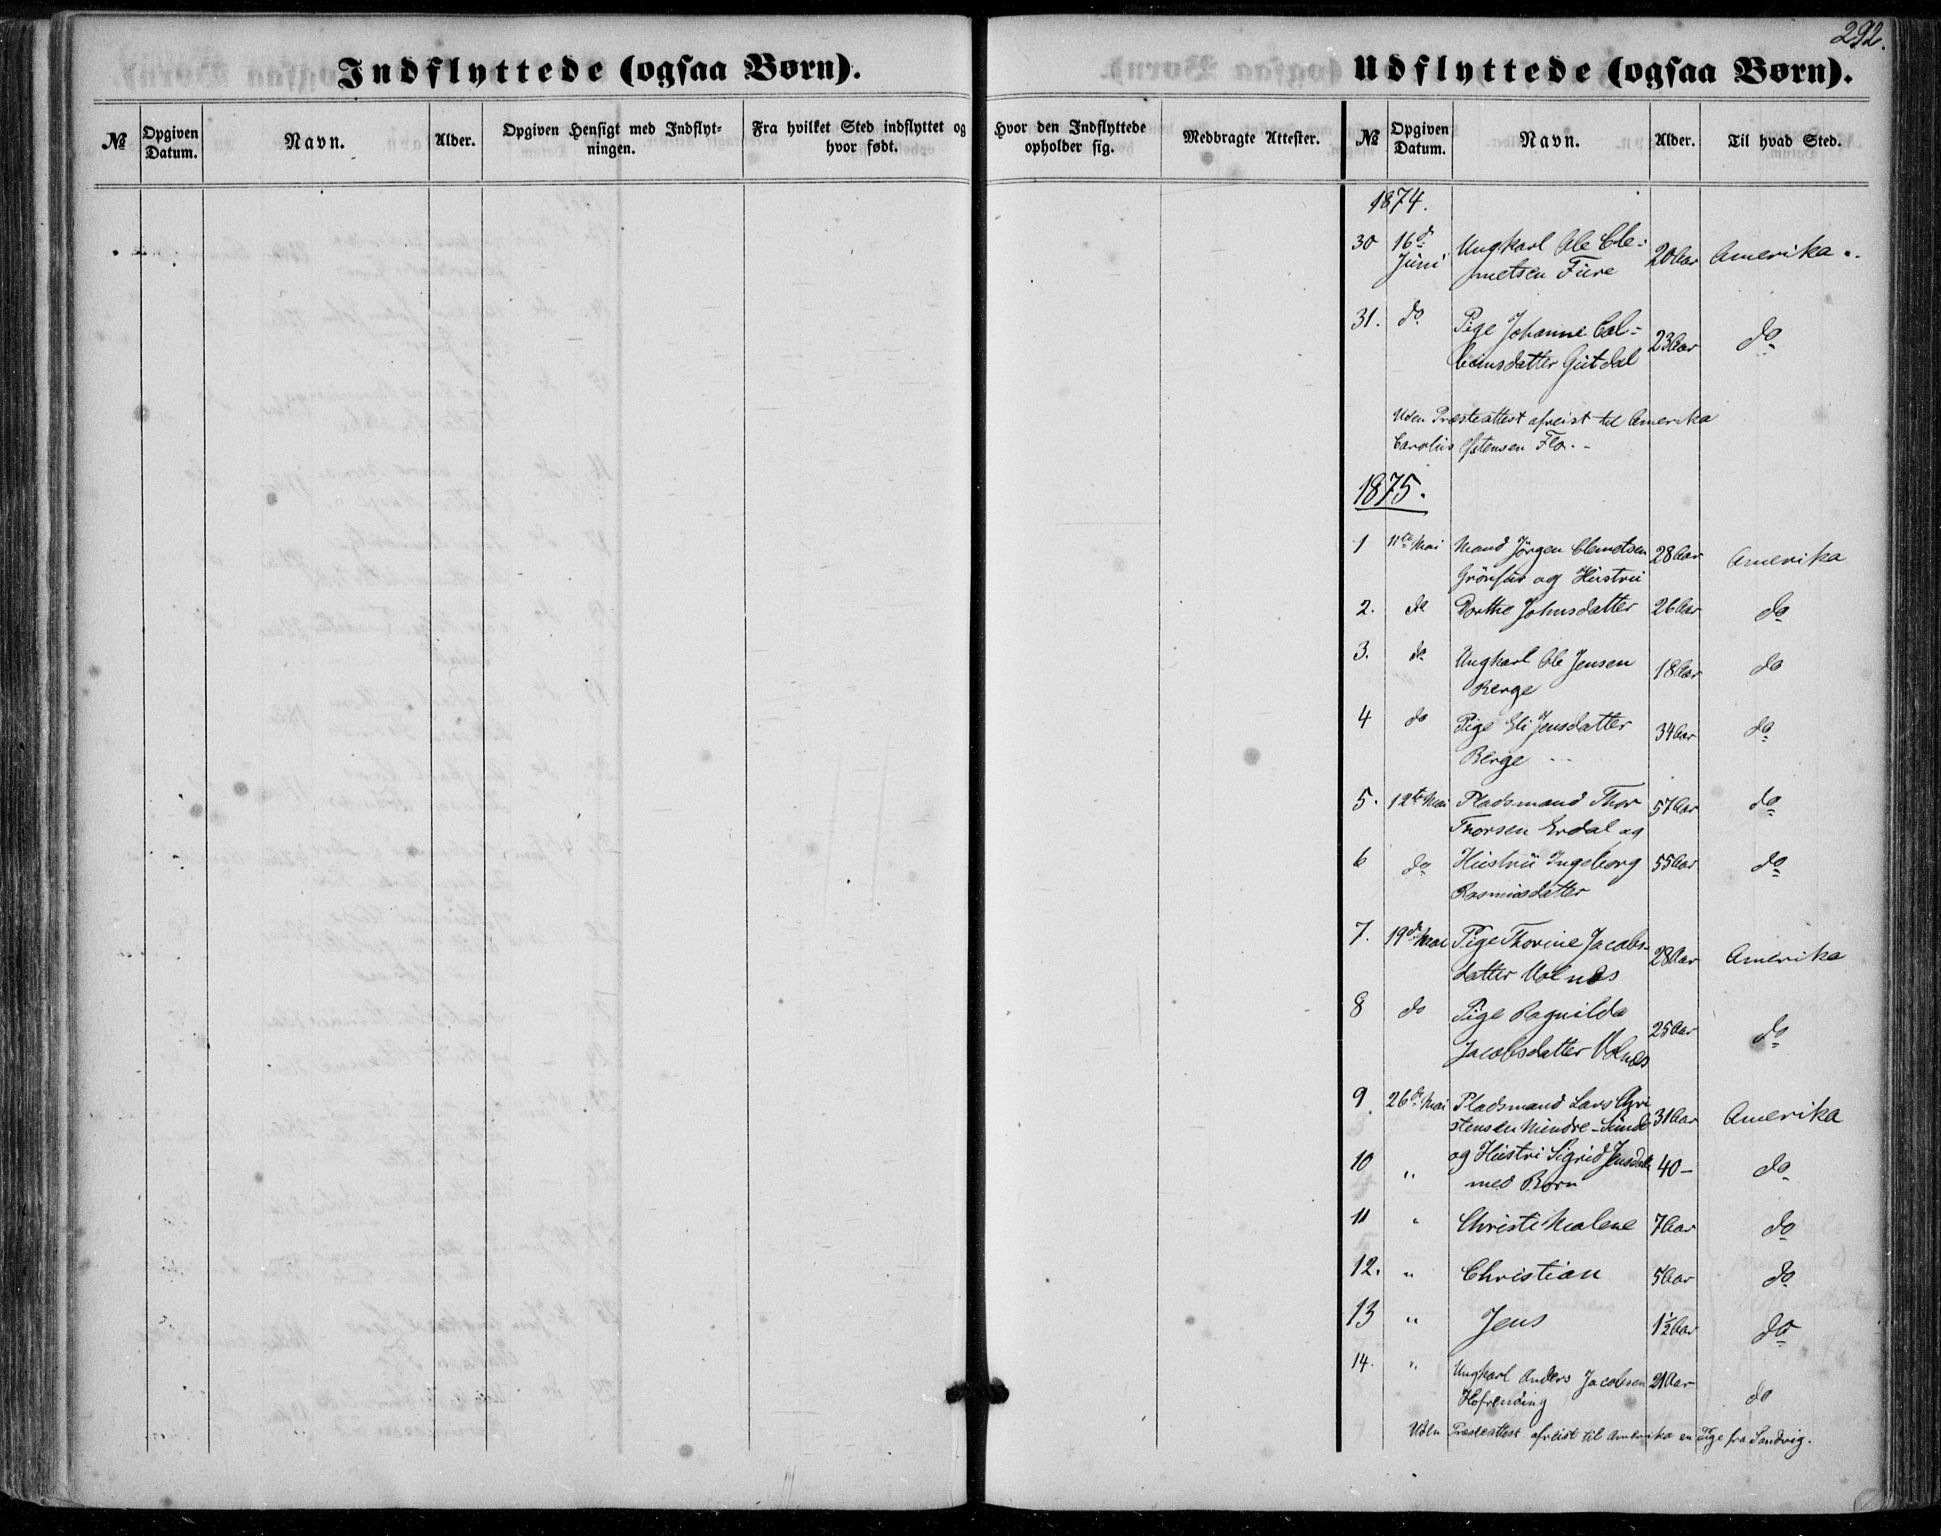 292.
Indflyttede (ogsaa Børn).
Udflyttede (ogsaa Børn).
№ Opgiven Datum. Navn. Alder. Opgiven Hensigt med Indflyt-ningen. Fra hvilket Sted indflyttet og hvor født. Hvor den Indflyttede opholder sig. Medbragte Attester. № Opgiven Datum. Navn. Alder. Til hvad Sted.
1874.
30 16d Ungkarl Ole Cle- 20 Aar Amerika.
Juni metsen Fure
31. do Pige Johanne Col- 23 Aar do
bensdatter Gutdal
Uden Præsteattest afreist til Amerika
Carolus Østensen Flo.
1875.
1 11te Mai Mand Jörgen Clemetsen 28 Aar Amerika
Grönfur og Hustru
2. do Dorthe Johnsdatter 26 Aar do
3. do Ungkarl Ole Jensen 18 Aar do
Berge
4 do Pige Eli Jensdatter 34 Aar do
Berge
5. 12te Mai Pladsmand Thor 57 Aar do
Thorsen Erdal og
6 do Hustru Ingeborg 55 Aar do
Rasmusdatter
7. 19de Mai Pige Thorine Jacobs- 28 Aar Amerika
datter Volnes
8 do Pige Ragnilda 25 Aar do
Jacobsdatter Volnes
9 26de Mai Pladsmand Lars Chri 31 Aar Amerika
stensen Mindre-Sunde
10 " og Hustru Sigrid Jensdatt 40 - do
med Børn
11 " Christi Malene 7 Aar do
12. " Christian 5 Aar do
13 " Jens 1½ Aar do
14. " Ungkarl Anders Jacobsen 21 Aar do
Hofrenning
Uden Præsteattest afreist til Amerika en Pige fra Sandvig.